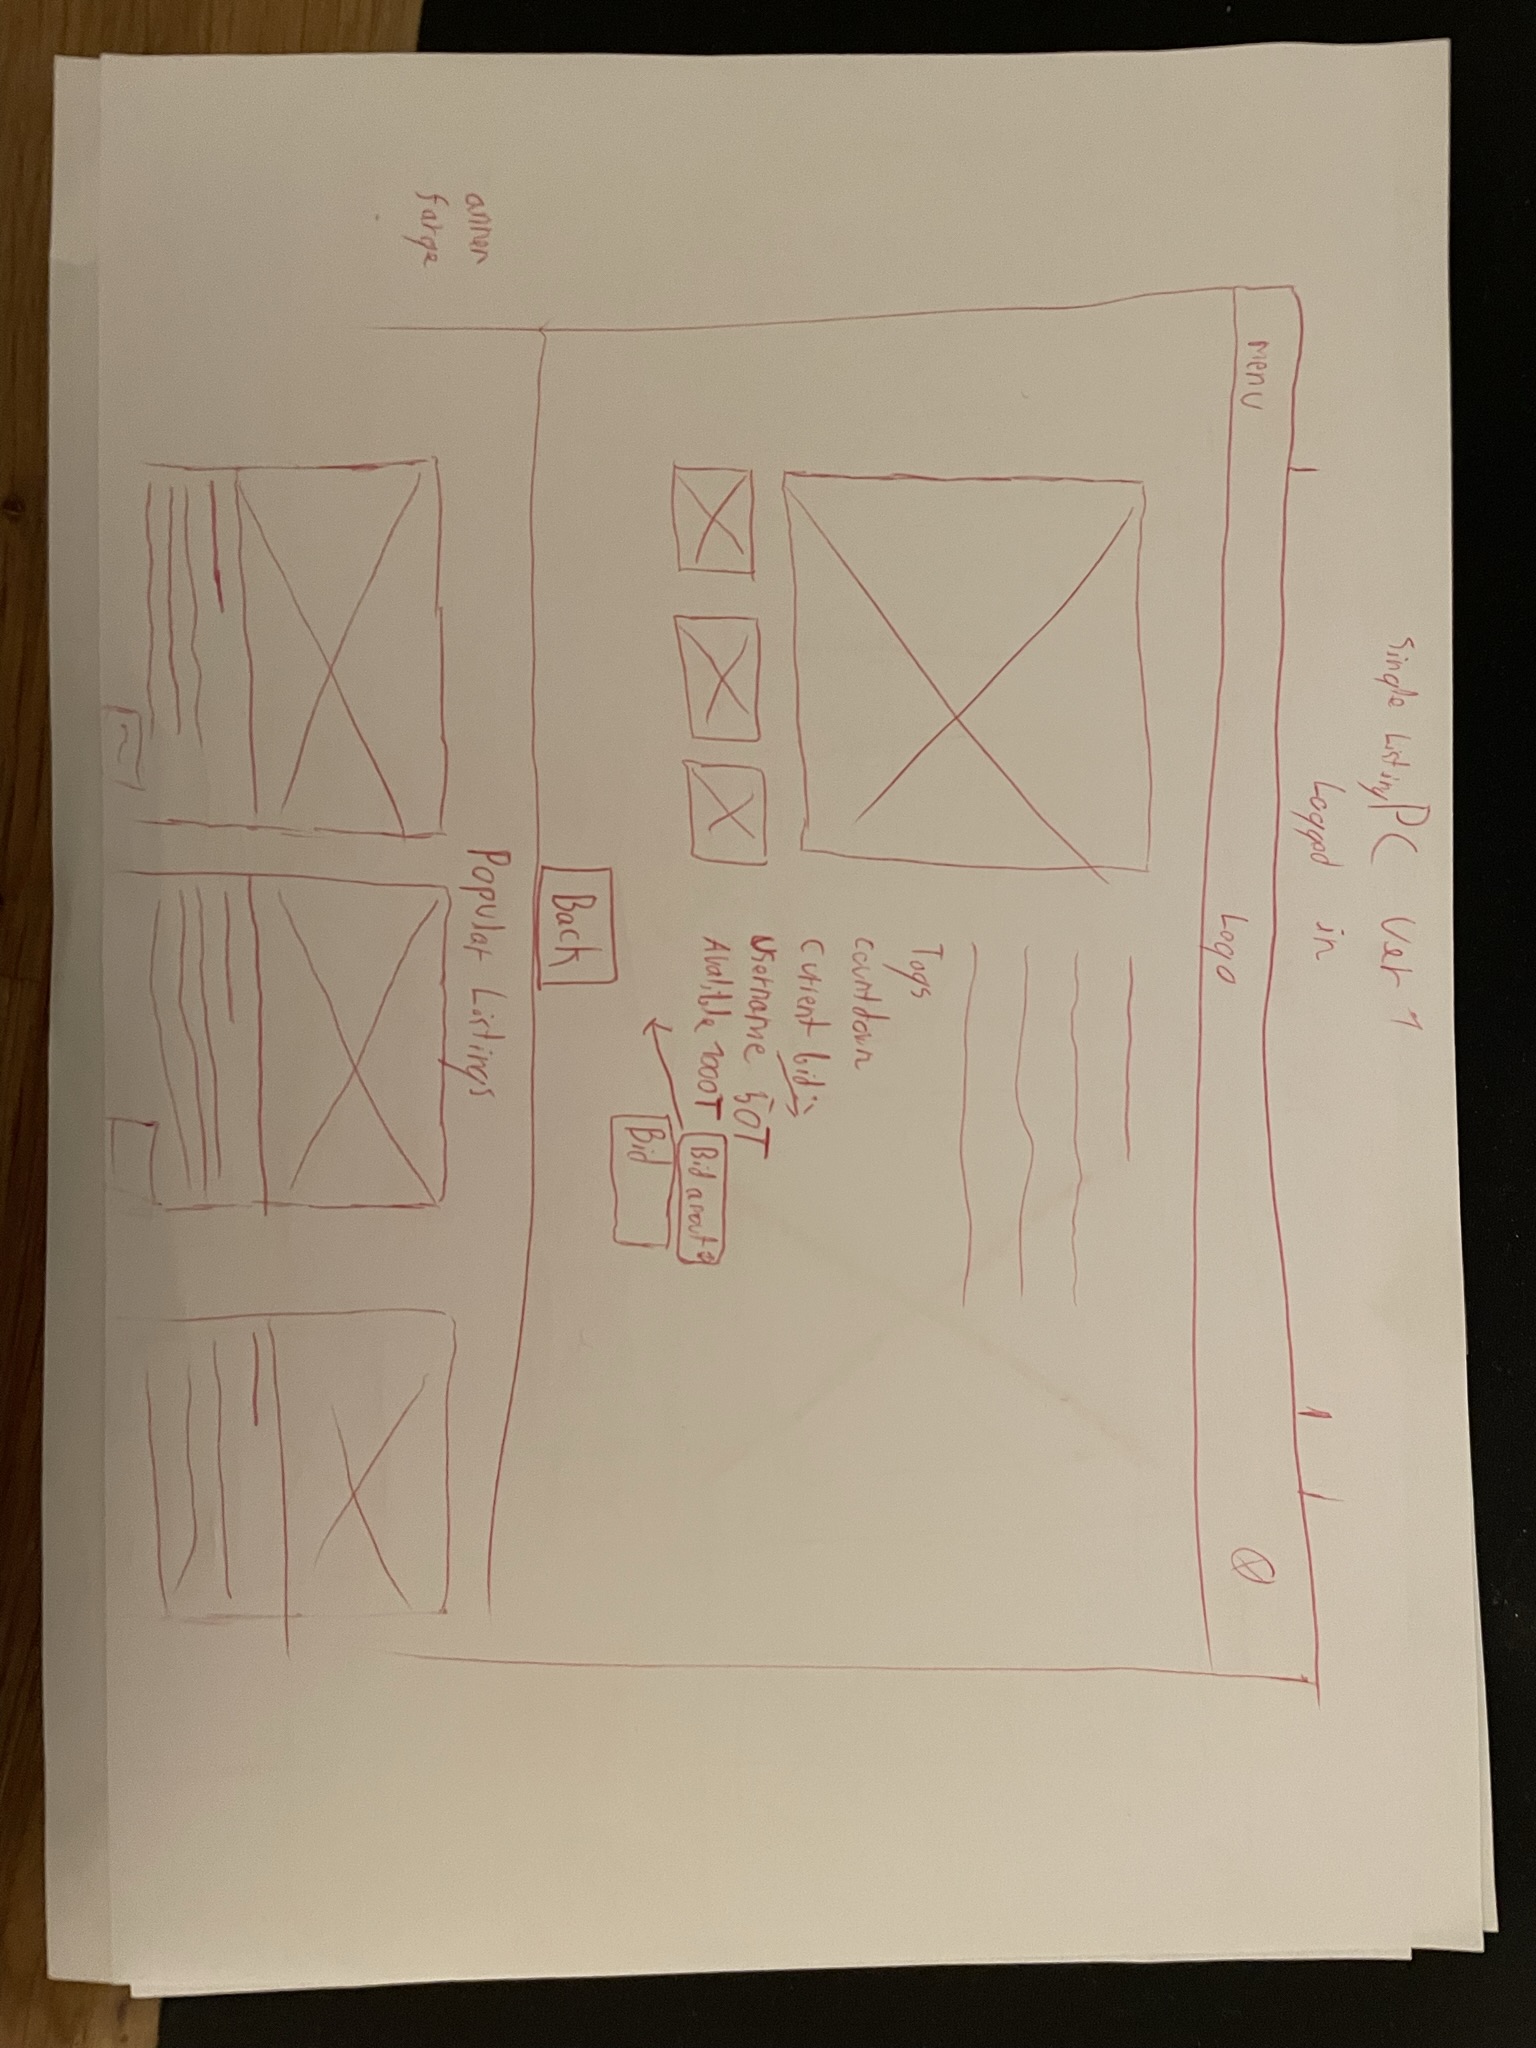 Single Listing PC Ver 1
Logged in
Menu
Logo
Tags
Countdown
Current bids
Username 50T
Avalible 1000T
Bid
Bid
Back
Popular Listings
annen
farge